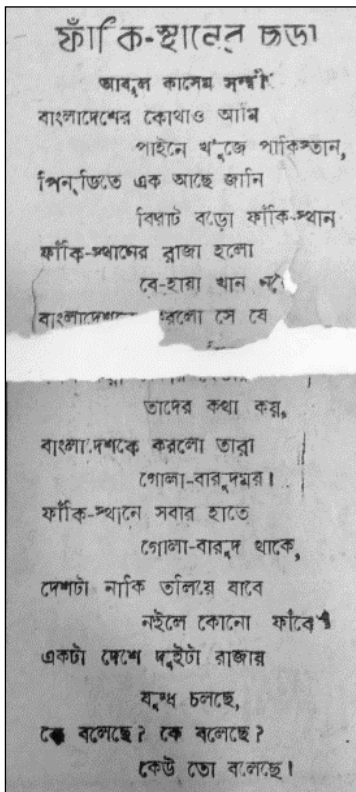 ফাঁকি-স্থানের ছড়া
আবুল কাসেম সন্দ্বীপ
বাংলাদেশের কোথাও আমি
পাইনে খুঁজে পাকিস্তান,
পিন্ডিতে এক আছে জানি
বিরাট বড়ো ফাঁকি-স্থান
ফাঁকি-স্থানের রাজা হলো
বে-হায়া খান
করলো সে যে
তাদের কথা কয়,
বাংলাদেশকে করলো তারা
গোলা-বারুদময়।
ফাঁকি-স্থানে সবার হাতে
গোলা-বারুদ থাকে,
দেশটা নাকি তলিয়ে যাবে
নইলে কোনো ফাঁকে
একটা দেশে দুইটা রাজার
যুদ্ধ চলছে,
কে বলেছে? কে বলেছে?
কেউ তো বলেছে।